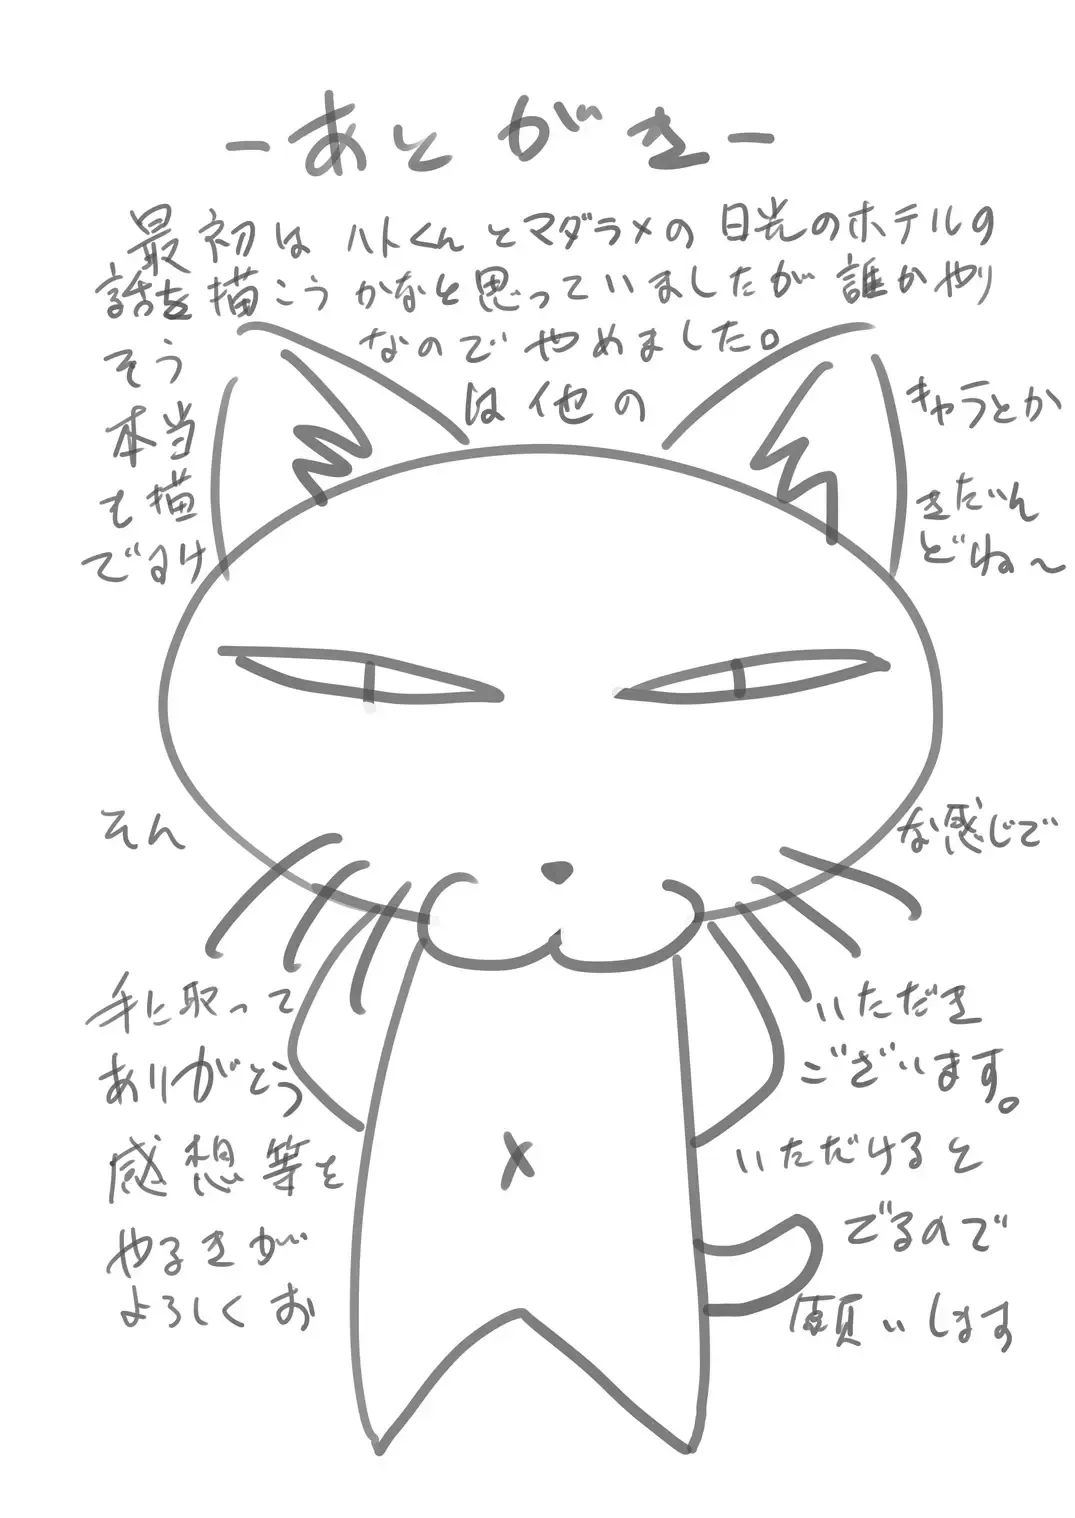 -あとがき-
最初はハトくんとマダラメの日光のホテルの
話を描こうかなと思っていましたが誰かやり
そう なのでやめました。
本当 は他の キャラとか
も描 きたいん
でるけ どね〜
そん な感じで
手に取って いただき
ありがとう ございます。
感想等を いただけると
やるきが でるので
よろしくお 願いします